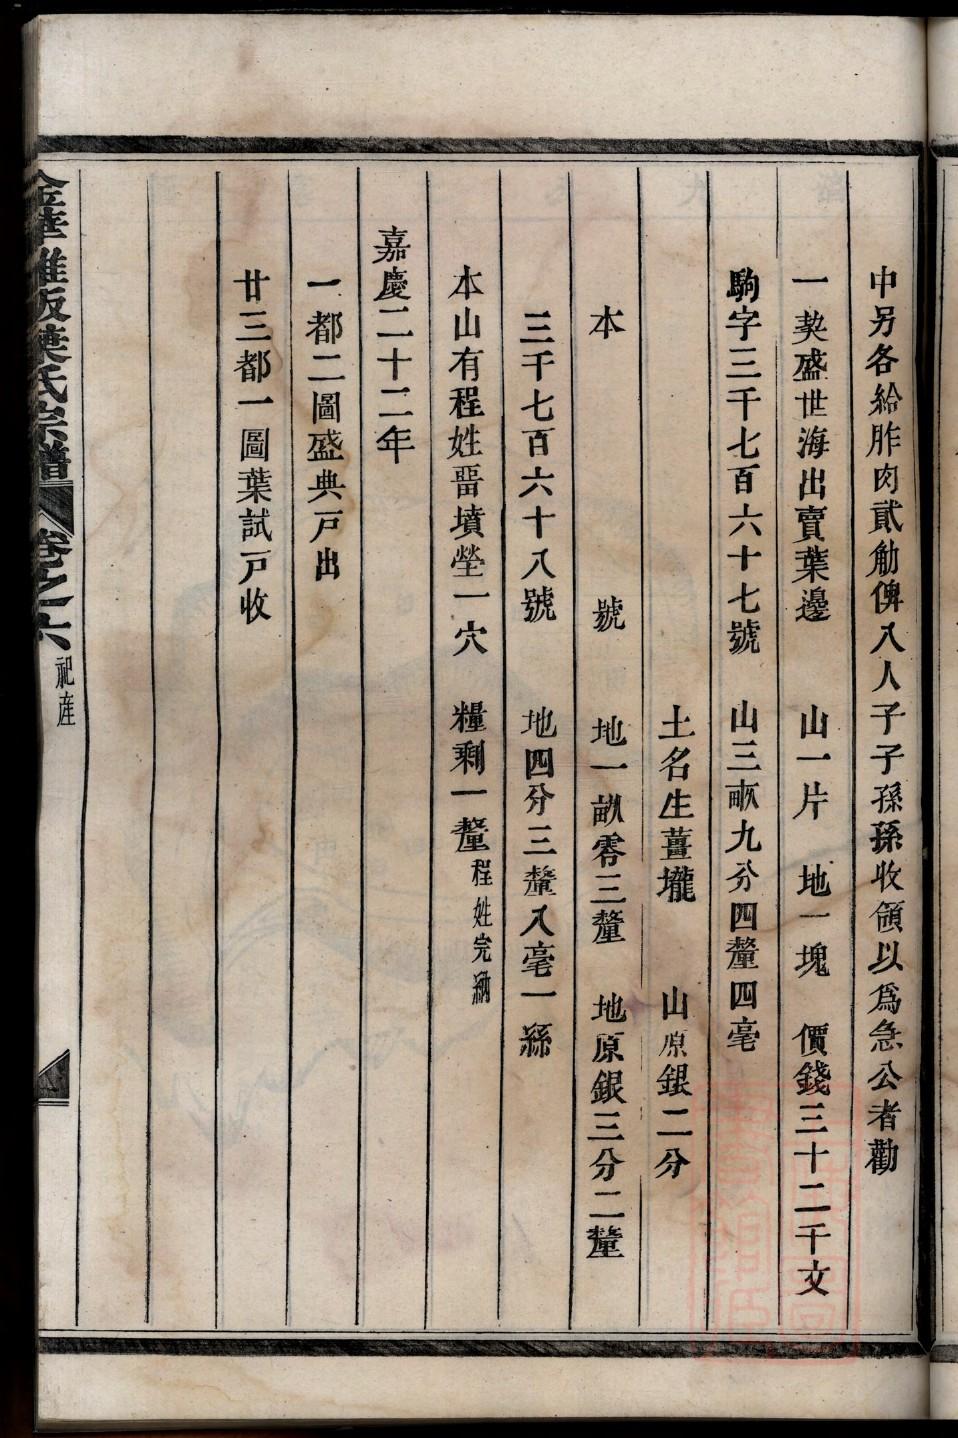 中另各給胙肉貳觔俾入人子子孫孫收領以爲急公者勸
一契盛世海出賣葉邊 山一片 地一塊 價錢三十二千文
駒字三千七百六十七號 山三畝九分四釐四毫
土名生薑壠 山原銀二分
本 號 地一畝零三釐 地原銀三分二釐
三千七百六十八號 地四分三釐八毫一絲
本山有程姓畱墳塋一穴 糧剩一釐程姓完納
嘉慶二十二年
一都二圖盛典戸出
廿三都一圖葉試戸收
金華雅畈葉氏宗譜 卷之六 祀產